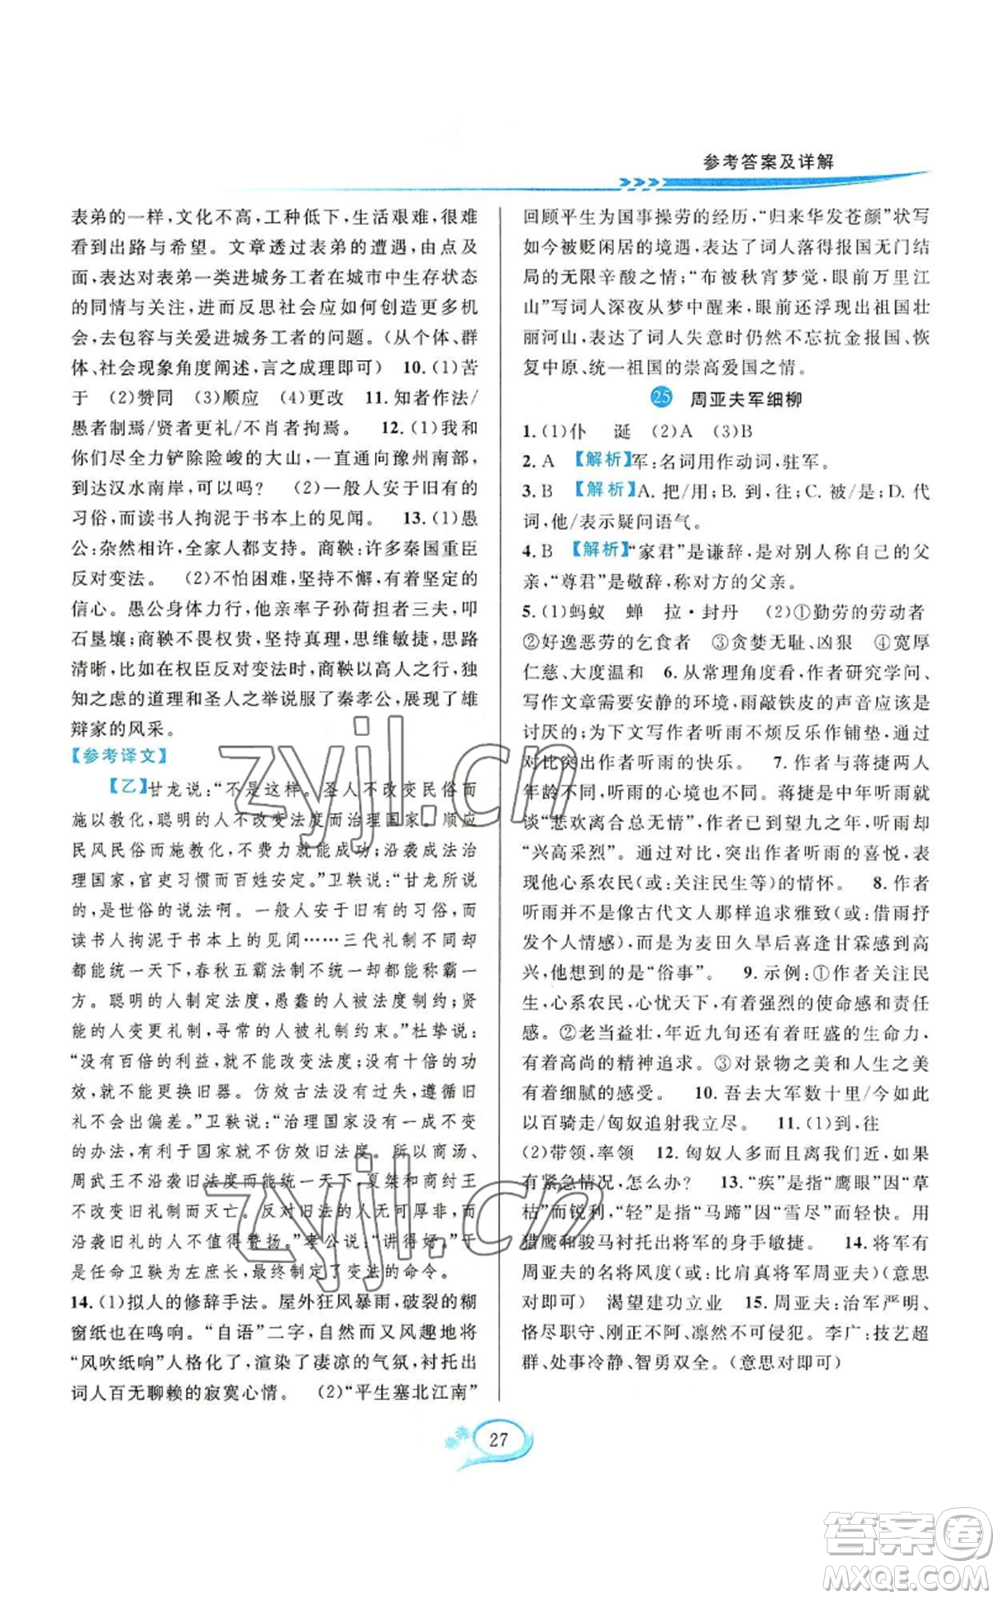 参考答案及详解
表弟的一样,文化不高,工种低下,生活艰难,很难
看到出路与希望。文章透过表弟的遭遇,由点及
面,表达对表弟一类进城务工者在城市中生存状态
的同情与关注,进而反思社会应如何创造更多机
会,去包容与关爱进城务工者的问题。(从个体、群
体、社会现象角度阐述,言之成理即可) 10.(1)苦
于 (2)赞同 (3)顺应 (4)更改 11.知者作法/
愚者制焉/贤者更礼/不肖者拘焉。 12.(1)我和
你们尽全力铲除险峻的大山,一直通向豫州南部,
到达汉水南岸,可以吗? (2)一般人安于旧有的
习俗,而读书人拘泥于书本上的见闻。 13.(1)愚
公:杂然相许,全家人都支持。商鞅:许多秦国重臣
反对变法。 (2)不怕困难,坚持与执行既定的
信心。愚公身体力行,他亲率子孙荷担者三夫,叩
石垦壤;商鞅不畏权贵,坚持真理,思维敏捷,思路
清晰,比如在权臣反对变法时,商鞅以高人之行,独
知之虑的道理和圣人之举说服了秦孝公,展现了雄
辩家的风采。
【参考译文】
【乙】甘龙说:“不是这样。圣人不改变民俗而
施以教化,聪明的人不改变法度而治理国家。顺应
民风民俗而施教化,不费力就能成功;沿袭成法治
理国家,官吏习惯而百姓安定。”卫鞅说:“甘龙所说
的,是世俗的说法啊。一般人安于旧有的习俗,而
读书人拘泥于书本上的见闻……三代礼制不同而
都能统一天下,春秋五霸法制不一而都能称霸一
方。聪明的人制定法度,愚蠢的人被法度制约;贤
能的人变更礼制,寻常的人被礼制约束。”杜挚说:
“没有百倍的利益,就不能改变法度;没有十倍的功
效,就不能更换旧器。仿效古法没有过失,遵循旧
礼不会出偏差。”卫鞅说:“治理国家没有一成不变
的办法,有利于国家就不仿效旧法度。所以商汤、
周武王不沿袭旧法度而能统一天下,夏桀和商纣王
不改变旧礼制而灭亡。反对旧法的人无可厚非,而
沿袭旧礼的人不值得赞扬。”孝公说:“讲得好。”于
是任命卫鞅为左庶长,最终制定了变法的命令。
14.(1)拟人的修辞手法。屋外狂风暴雨,破裂的糊
窗纸也在鸣响。“自语”二字,自然而又风趣地将
“风吹纸响”人格化了,渲染了凄凉的气氛,衬托出
词人百无聊赖的寂寞心情。 (2)“平生塞北江南”
回顾平生为国事操劳的经历,“归来华发苍颜”状写
如今被贬闲居的境遇,表达了词人落得报国无门结
局的无限辛酸之情;“布被秋宵梦觉,眼前万里江
山”写词人深夜从梦中醒来,眼前还浮现出祖国壮
丽河山,表达了词人失意时仍然不忘抗金报国、恢
复中原、统一祖国的崇高爱国之情。
25 周亚夫军细柳
1.(1)仆 诞 (2)A (3)B
2.A 【解析】军:名词用作动词,驻军。
3.B 【解析】A.把/用;B.到,往;C.被/是;D.代
词,他/表示疑问语气。
4.B 【解析】“家君”是谦辞,是对别人称自己的父
亲,“尊君”是敬辞,称对方的父亲。
5.(1)蚂蚁 蝉 拉·封丹 (2)①勤劳的劳动者
②好逸恶劳的乞食者 ③贪婪无耻、凶狠 ④宽厚
仁慈、大度温和 6.从常理角度看,作者研究学问、
写作文章需要安静的环境,雨敲铁皮的声音应该是
讨厌的;为下文写作者听雨不烦反乐作铺垫,以便
对比突出作者听雨的快乐。 7.作者与蒋捷两人
年龄不同,听雨的心境也不同。蒋捷是中年听雨就
谈“悲欢离合总无情”,作者已到望九之年,听雨却
“兴高采烈”。通过对比,突出作者听雨的喜悦,表
现他心系农民(或:关注民生等)的情怀。 8.作者
听雨并不是像古代文人那样追求雅致(或:借雨抒
发内心复杂的情感),而是为麦田久旱后喜逢甘霖
而高兴,他想到的是“俗事”。 9.示例:①作者关注民
生,心系农民,心忧天下,具有强烈的使命感和责任
感。②老当益壮,年近九旬还有着旺盛的生命力,
有着高尚的精神追求。③对景物之美和人生之美
有着细腻的感受。 10.吾去大军数十里/今如此
以百骑走/匈奴追射我立尽。 11.(1)到,往
(2)带领,率领 12.匈奴人多而且离得近,如果
有紧急情况,怎么办? 13.“疾”是指“鹰眼”因“草
枯”而锐利,“轻”是指“马蹄”因“雪尽”而轻快。用
猎鹰和骏马衬托出将军的身手敏捷。 14.将军有
周亚夫的名将风度(或:比肩真将军周亚夫)(意思
对即可) 渴望建功立业 15.周亚夫:治军严明、
恪尽职守、刚正不阿、凛然不可侵犯。李广:技艺超
群、处事冷静、智勇双全。(意思对即可)
27
zyjl.cn
zyjl.cn
答案圈
MXQE.COM